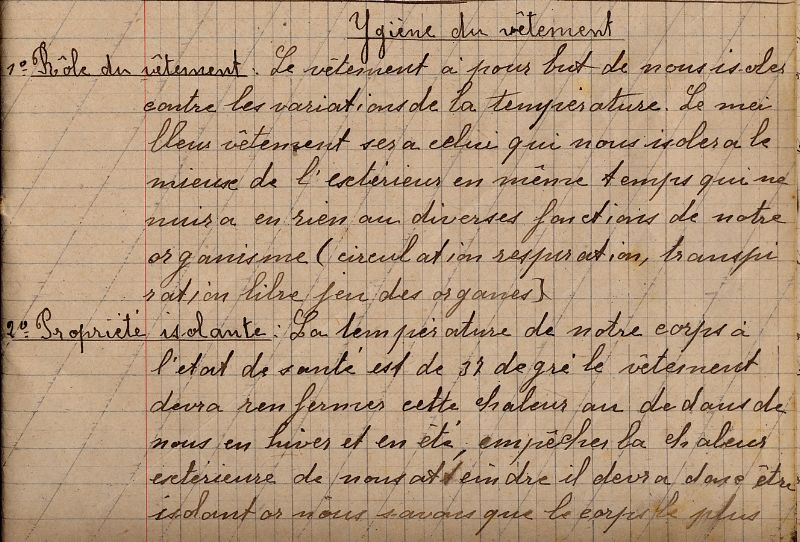 Ygiène du vêtement
1º Rôle du vêtement : Le vêtement à pour but de nous isoler
contre les variations de la température. Le mei
lleur vêtement sera celui qui nous isolera le
mieux de l'extérieur en même temps qui ne
nuira en rien au diverses fonctions de notre
organisme (circulation respiration, transpi
ration libre jeu des organes)
2º Propriété isolante : La température de notre corps à
l'état de santé est de 37 degré le vêtement
devra renfermer cette chaleur au dedans de
nous en hiver et en été, empêcher la chaleur
extérieure de nous atteindre il devra donc être
isolant or nous savons que le corps le plus